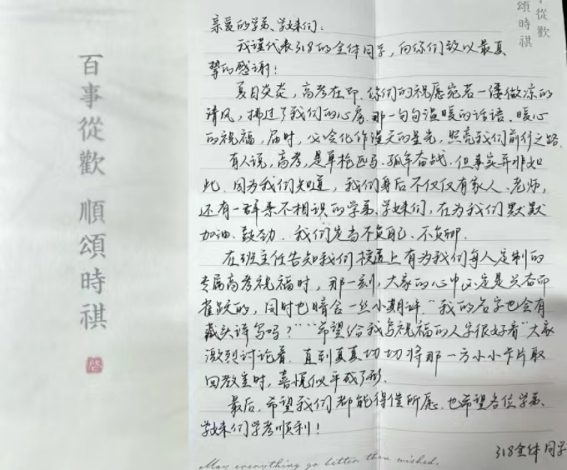 百事從歡 順頌時祺
事從歡
頌時祺
亲爱的学弟、学妹们:
我谨代表318的全体同学,向你们致以最真
挚的感谢!
夏日炎炎,高考在即,你们的祝愿宛若一缕微凉的
清风,拂过了我们的心房。那一句句温暖的话语、暖心
的祝福,届时,必会化作漫天的星光,照亮我们前行之路。
有人说,高考,是单枪匹马、孤军奋战,但事实并非如
此。因为我们知道,我们身后不仅仅有家人、老师,
还有一群素不相识的学弟、学妹们,在为我们默默
加油、鼓劲。我们定当不负己、不负卿。
在班主任告知我们 楼道上有为我们每人定制的
专属高考祝福时,那一刻,大家的心中必定是兴奋而
雀跃的,同时也暗含一丝小期许。“我的名字也会有
藏头诗写吗?”“希望给我写祝福的人字很好看”大家
激烈讨论着。直到真真切切将那一方小小卡片取
回教室时,喜悦似乎成了形。
最后,希望我们都能得偿所愿,也希望各位学弟、
学妹们学考顺利!
318全体同学
May everything go better than wished.